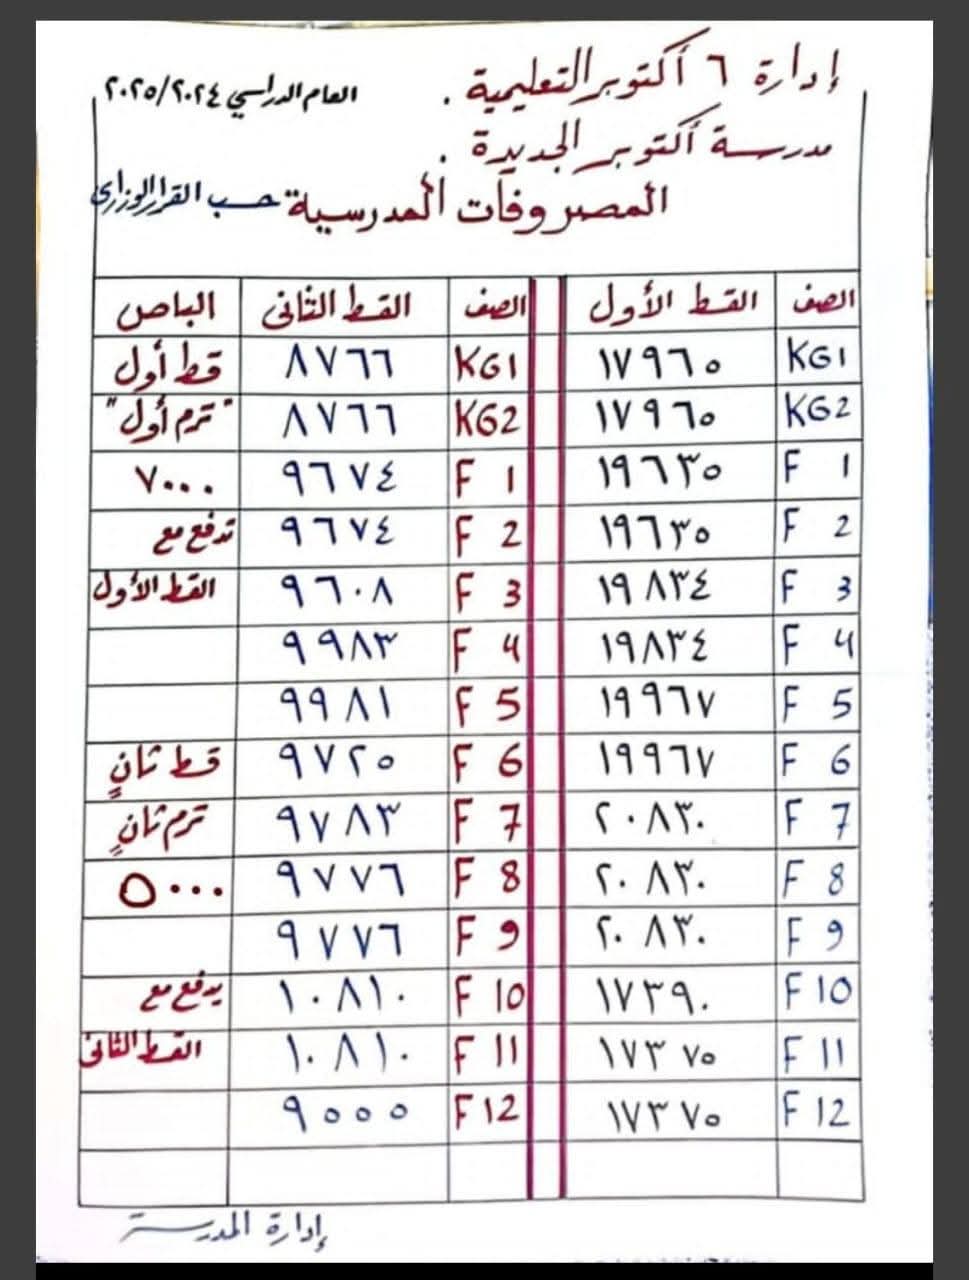 إدارة ٦ أكتوبر التعليمية . العام الدراسي ٢٠٢٥/٢٠٢٤
مدرسة أكتوبر الجديدة .
المصروفات المدرسية حسب القرار الوزارى
الصف القسط الأول الصف القسط الثانى الباص
KG1 ١٧٩٦٥ KG1 ٨٧٦٦ قسط أول
KG2 ١٧٩٦٥ KG2 ٨٧٦٦ "ترم أول"
F 1 ١٩٦٣٥ F 1 ٩٦٧٤ ٧٠٠٠
F 2 ١٩٦٣٥ F 2 ٩٦٧٤ تدفع مع
F 3 ١٩٨٣٤ F 3 ٩٦٠٨ القسط الأول
F 4 ١٩٨٣٤ F 4 ٩٩٨٣
F 5 ١٩٩٦٧ F 5 ٩٩٨١
F 6 ١٩٩٦٧ F 6 ٩٧٢٥ قسط ثانٍ
F 7 ٢٠٨٣٠ F 7 ٩٧٨٣ ترم ثانٍ
F 8 ٢٠٨٣٠ F 8 ٩٧٧٦ ٥٠٠٠
F 9 ٢٠٨٣٠ F 9 ٩٧٧٦
F 10 ١٧٣٩٠ F 10 ١٠٨١٠ يدفع مع
F 11 ١٧٣٧٥ F 11 ١٠٨١٠ القسط الثانى
F 12 ١٧٣٧٥ F 12 ٩٥٥٥
إدارة المدرسة